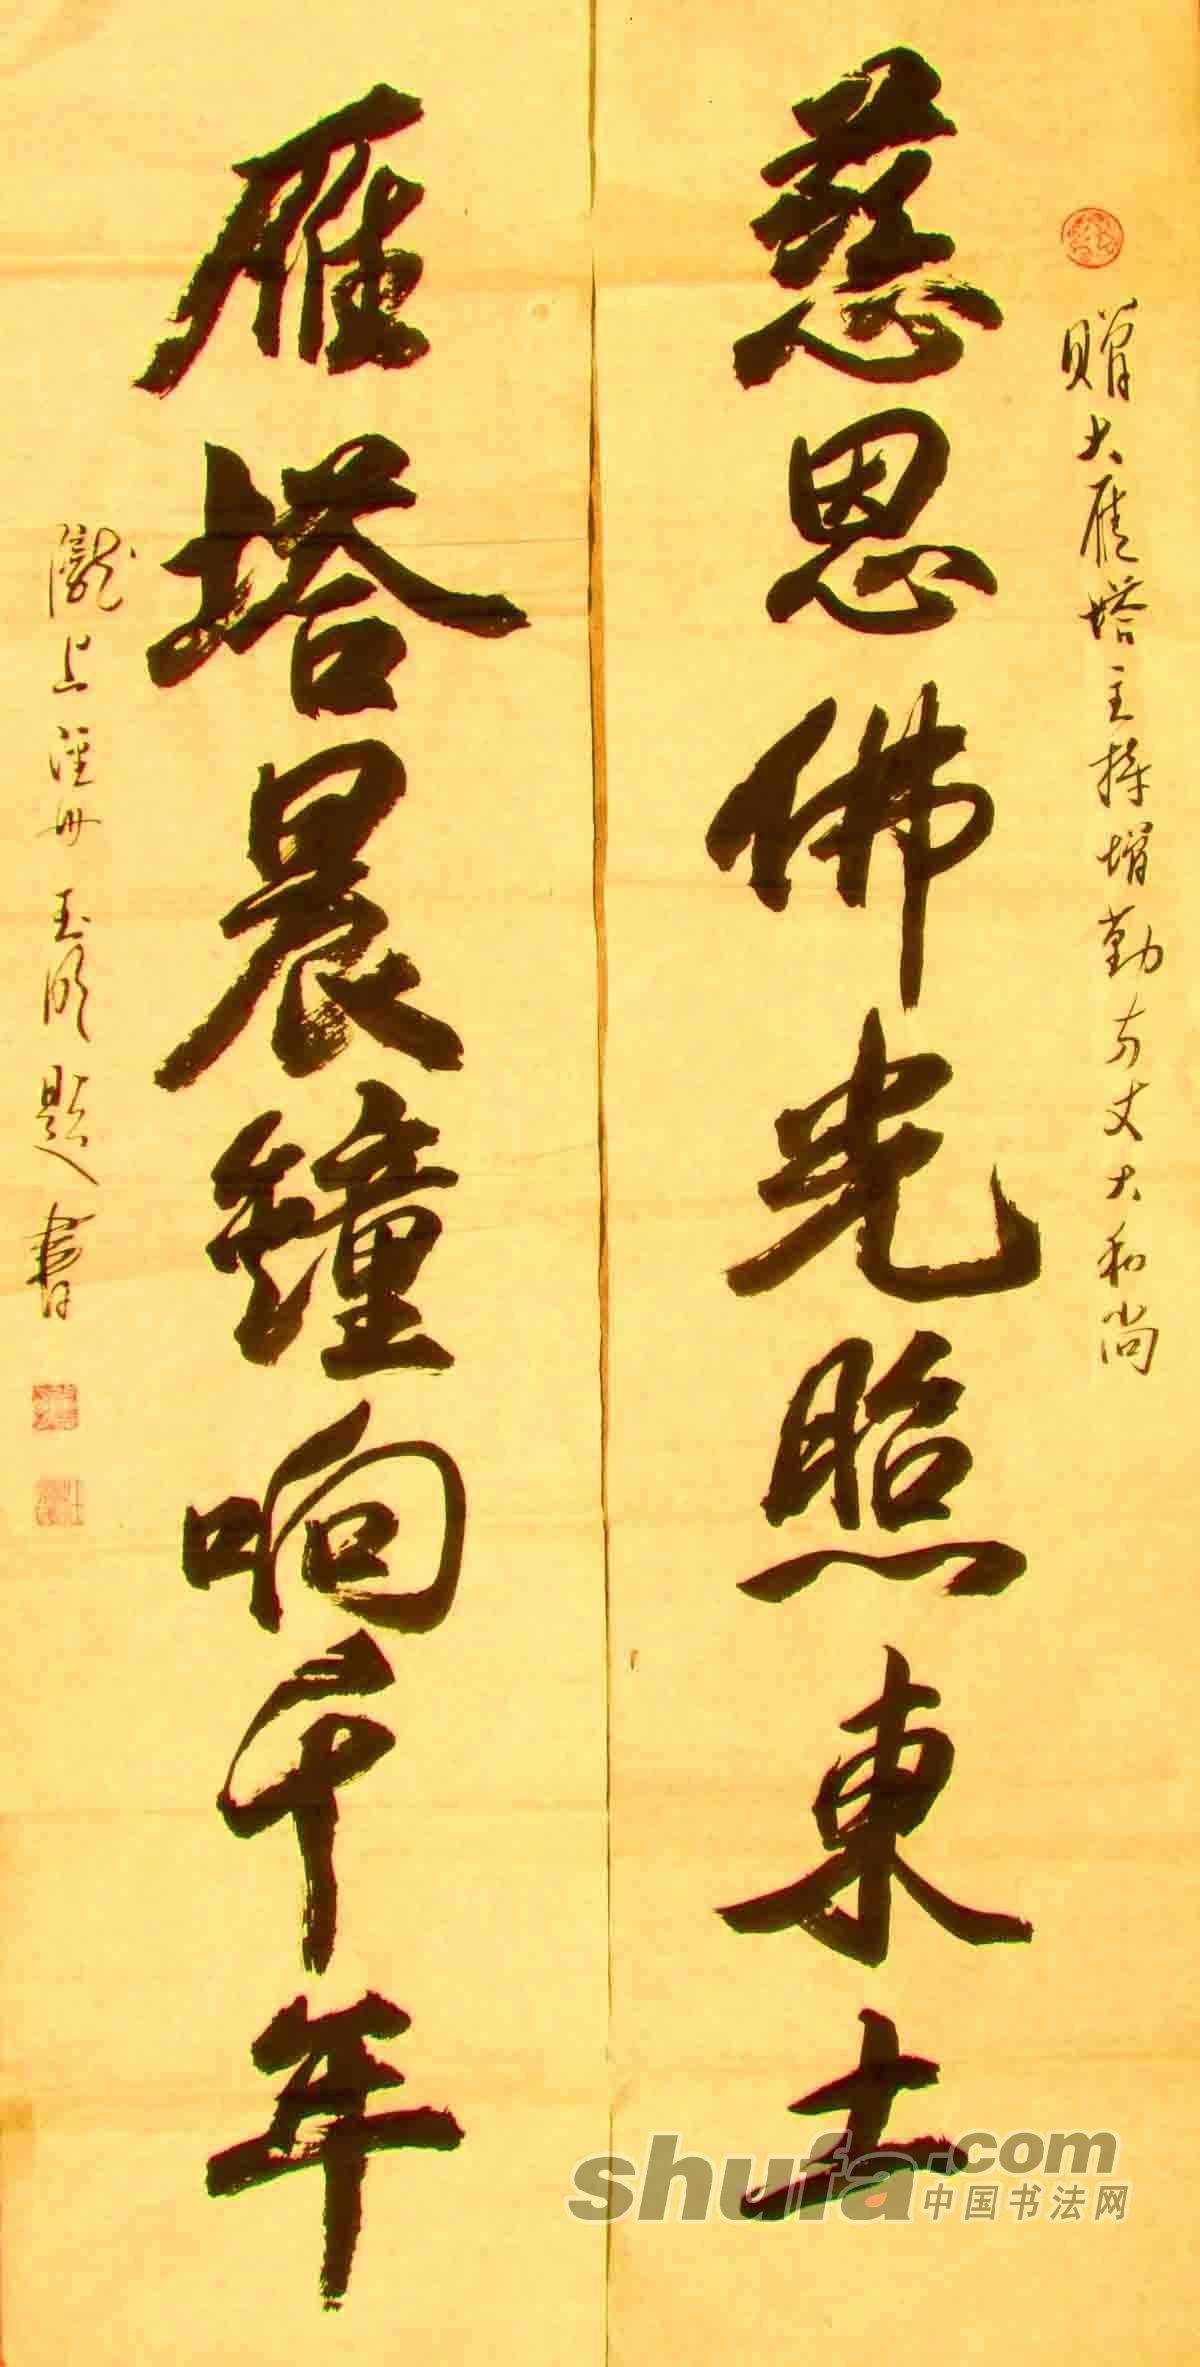 赠大雁塔主持增勤方丈大和尚
慈恩佛光照東土
雁塔晨鐘响千年
隴上涇州玉明題書
shufa.com
中国书法网